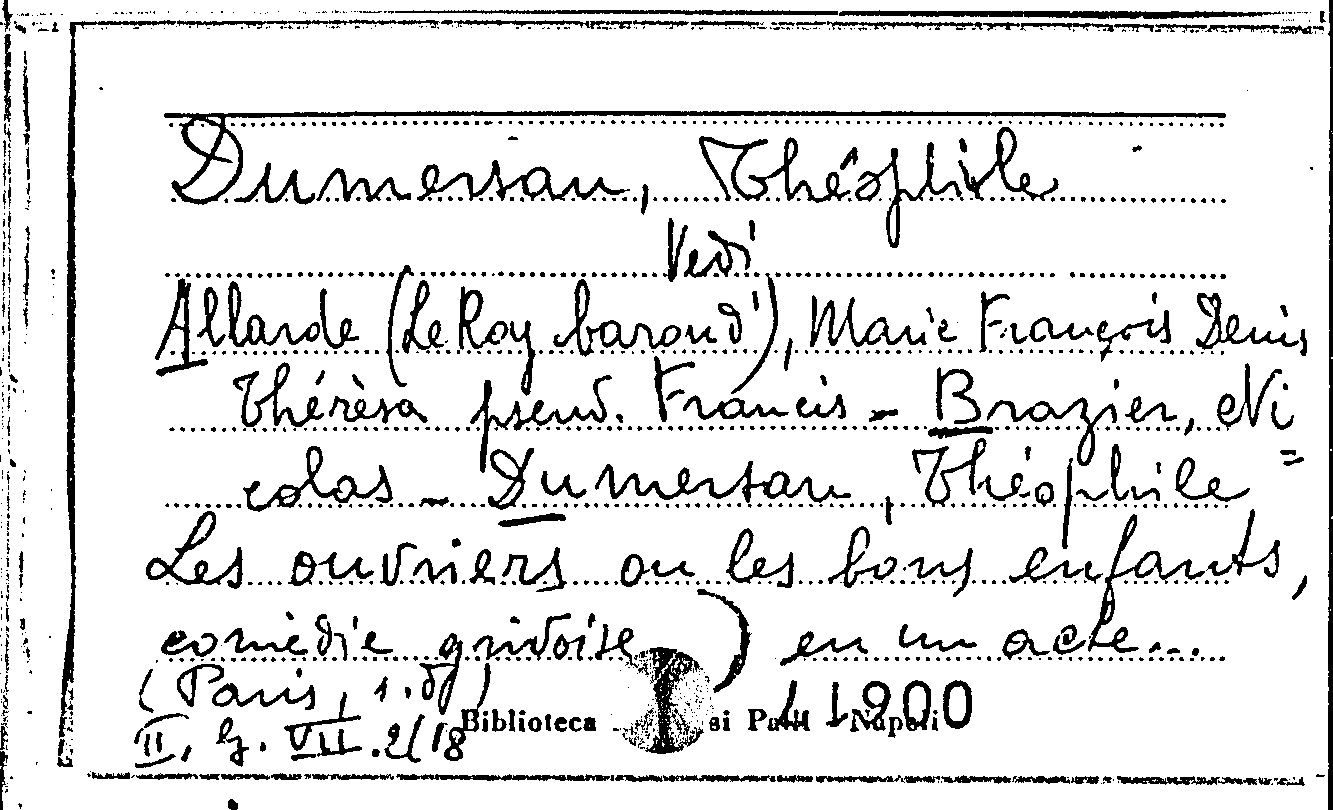 Dumersan, Théophile
Vedi
Allarde (Le Roy baron d'), Marie François Denis
Thérèsa pseud. Francis - Brazier, Ni=
colas - Dumersan, Théophile
Les ouvriers ou les bons enfants,
comèdie grivoise en un acte...
(Paris, s. d.)
II, G. VII. 2(18
Biblioteca si Napoli
11900